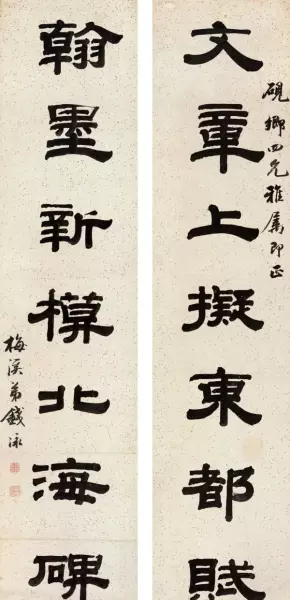 文章上擬東都賦
硯鄉四兄雅屬即正
翰墨新模北海碑
梅溪弟錢泳